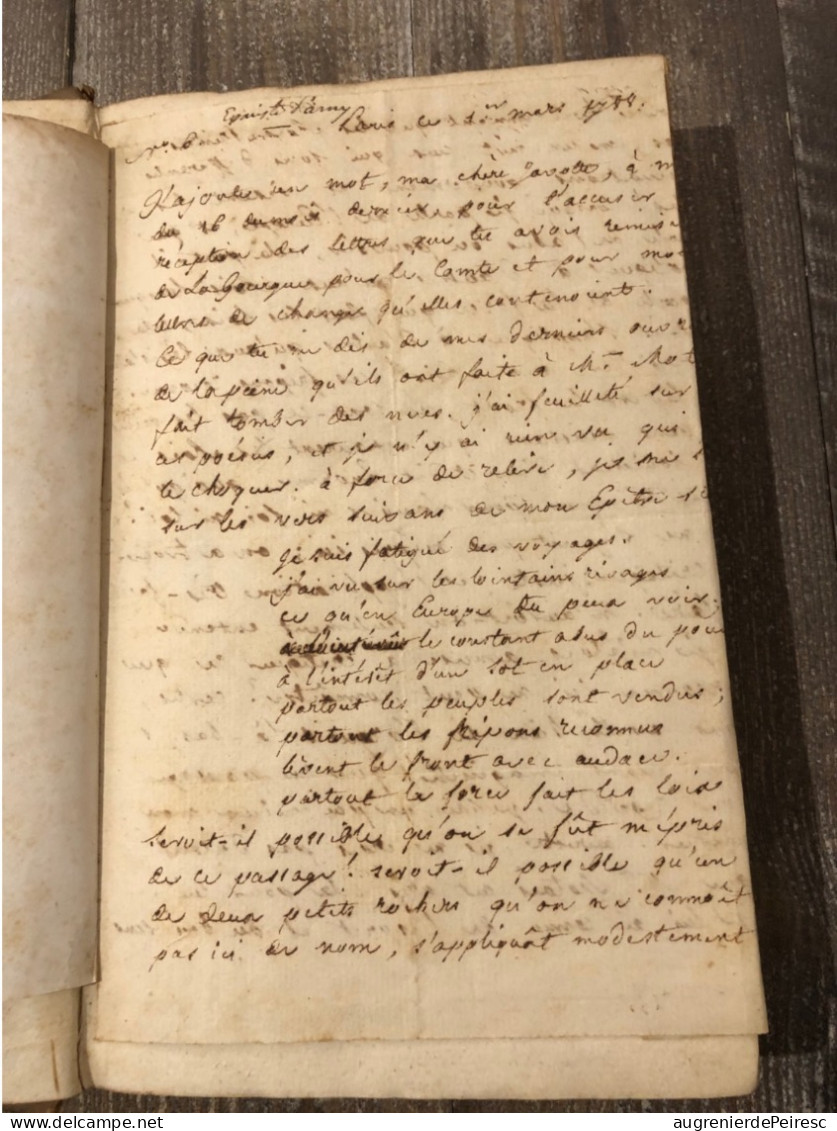 Epitre Parny
N.º 6 Paris ce 1er mars 1788.
J'ajoute un mot, ma chère Javotte, à m
du 16 du mois dernier pour t'accuser
réception des lettres que tu avois remise
de La Gourgue pour le Comte et pour moi
lettres de change qu'elles contenoient.
Ce que tu me dis de mes derniers ouvr
de la peine qu'ils ont faite à Mr.
fait tomber des nues. j'ai feuilleté sur
ces poésies, et je n'y ai rien vu qui
le choquer. à force de relire, je me
sur les vers suivans de mon Epitre
je suis fatigué des voyages.
j'ai vu sur les lointains rivages
ce qu'en Europe tu peux voir.
le constant abus du pouv
à l'intérêt d'un sot en place
partout les peuples sont vendus ;
partout les fripons reconnus
lèvent le front avec audace.
partout la force fait les loix
seroit-il possible qu'on se fût mépris
de ce passage ! seroit-il possible qu'un
de deux petits rochers qu'on ne connoît
pas ici de nom, s'appliquât modestement
delcampe.net
augrenierdePeiresc